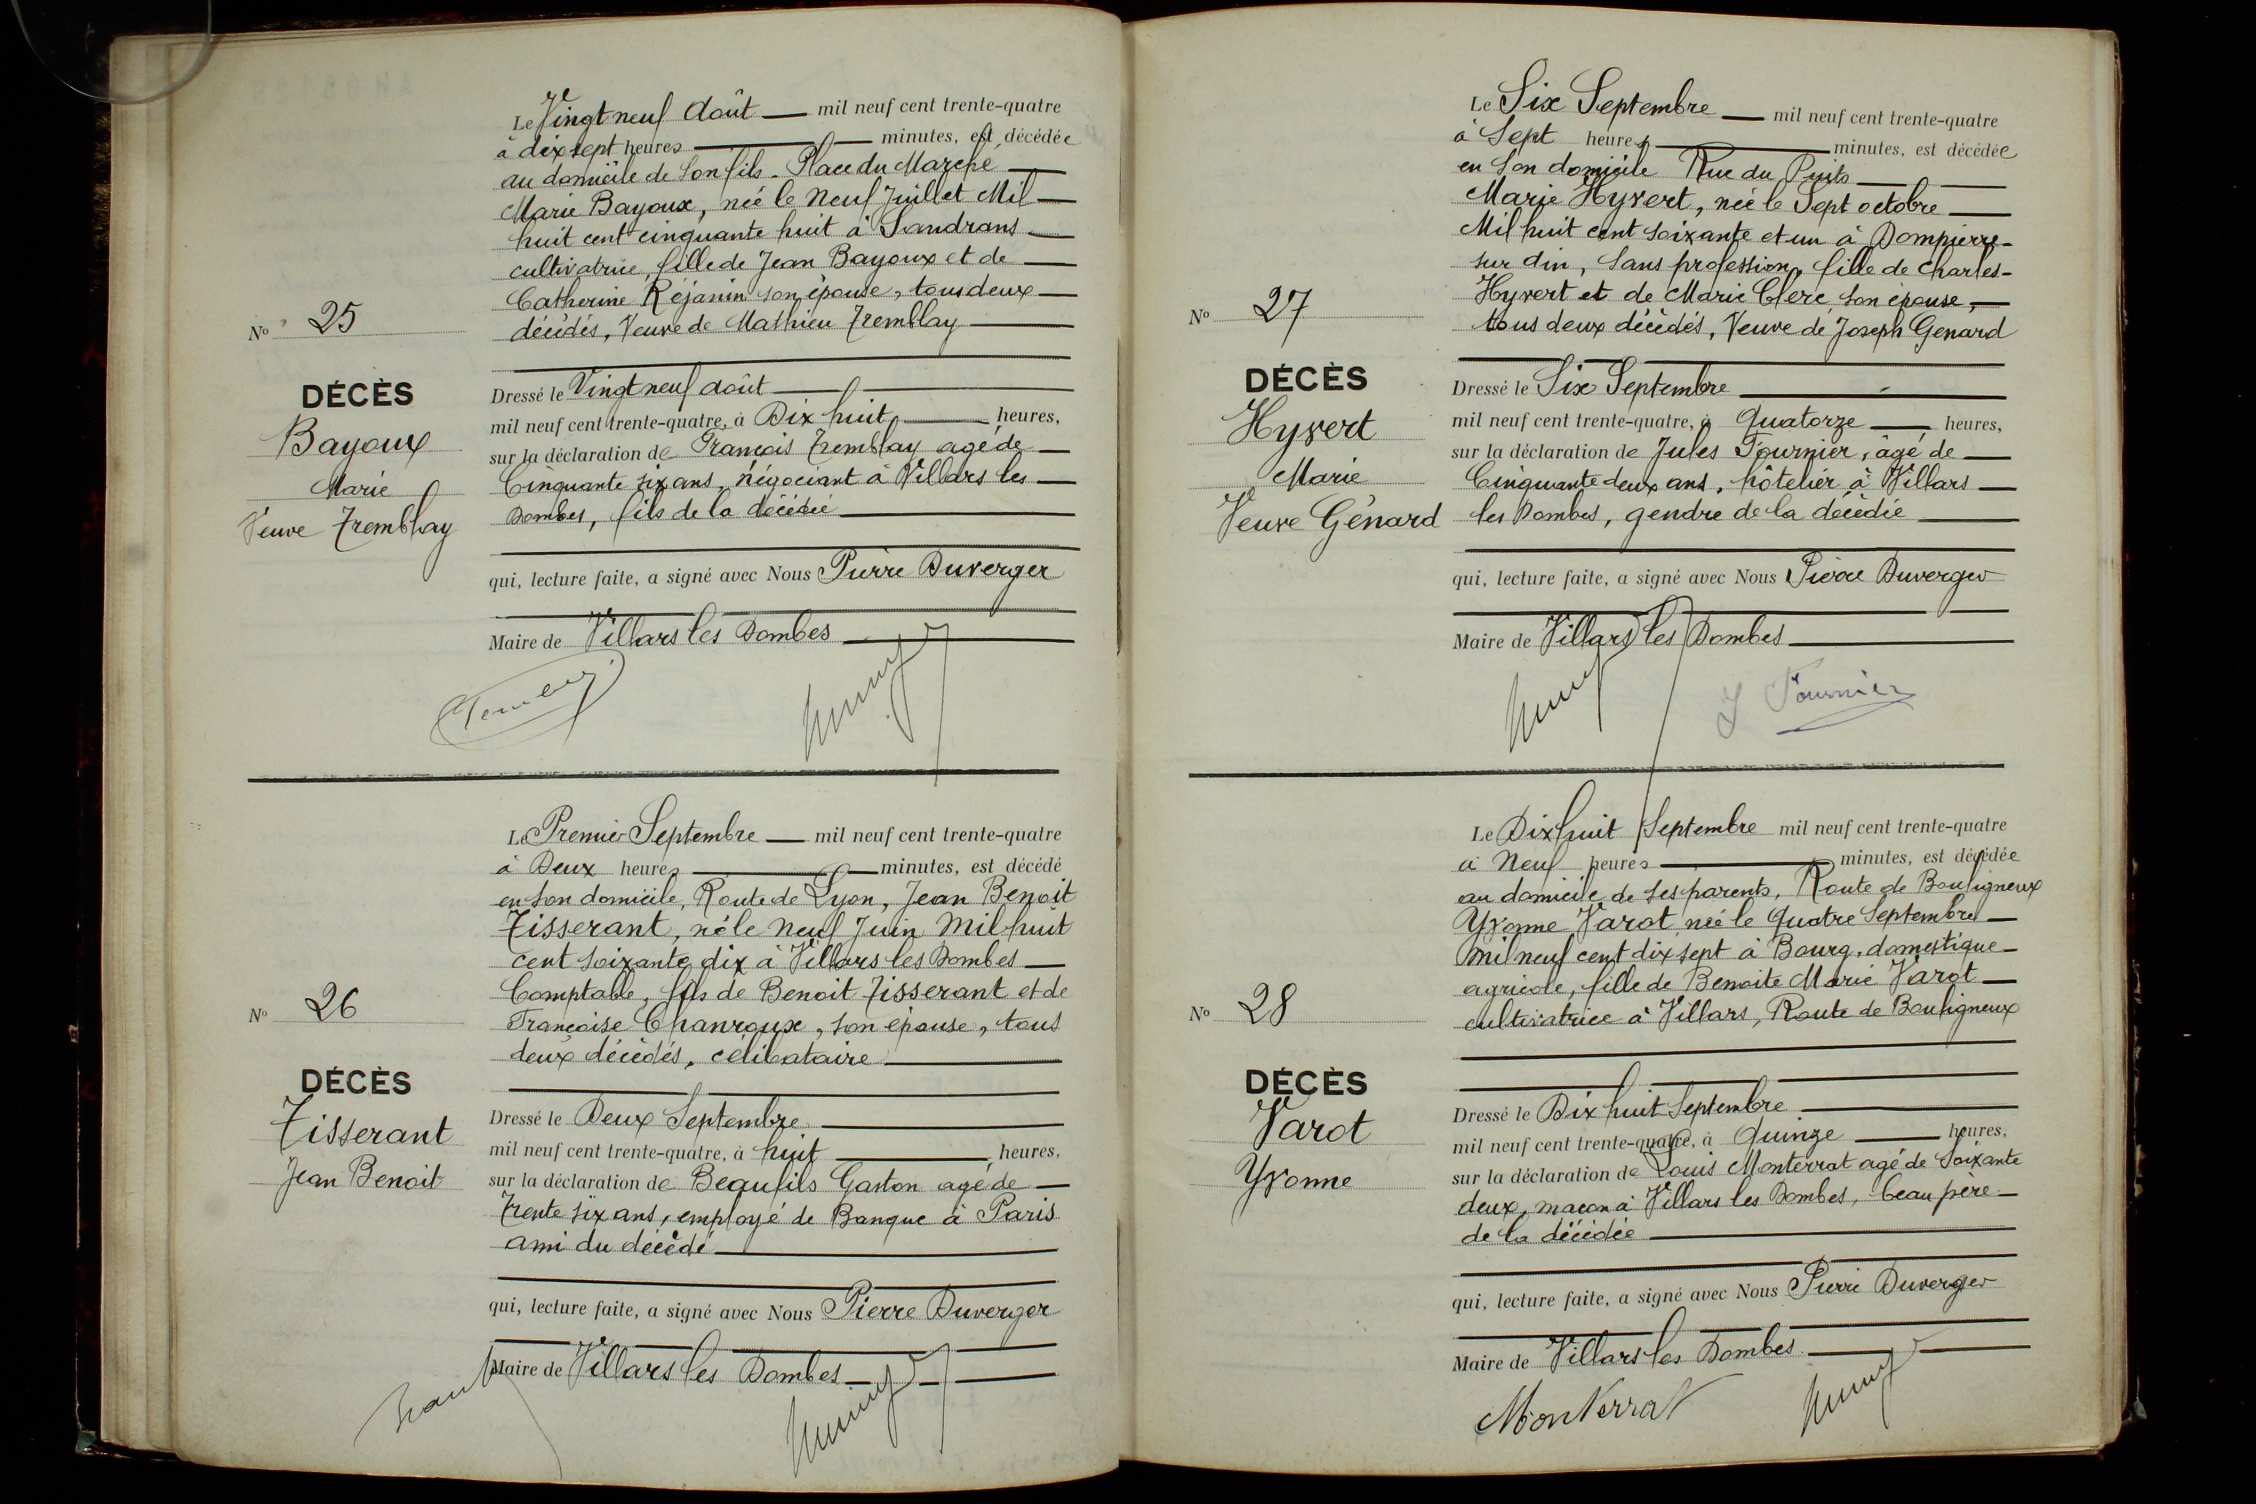 Le Vingt neuf Août — mil neuf cent trente-quatre
à dix sept heures — minutes, est décédée
au domicile de son fils - Place du Marché —
Marie Bayoux, née le Neuf Juillet Mil —
huit cent cinquante huit à Sandrans —
cultivatrice, fille de Jean Bayoux et de —
Catherine Réjanin son épouse, tous deux —
décédés, Veuve de Mathieu Tremblay —
No 25
DÉCÈS
Bayoux
Marie
Veuve Tremblay
Dressé le Vingt neuf août —
mil neuf cent trente-quatre, à Dix huit — heures,
sur la déclaration de François Tremblay agé de —
Cinquante six ans, négociant à Villars les —
Dombes, fils de la décédée —
qui, lecture faite, a signé avec Nous Pierre Duverger
Maire de Villars les Dombes —
Le Premier Septembre — mil neuf cent trente-quatre
à Deux heures — minutes, est décédé
en son domicile, Route de Lyon, Jean Benoit
Tisserant, né le Neuf Juin Mil huit
cent soixante dix à Villars les Dombes —
Comptable, fils de Benoit Tisserant et de
Françoise Chanroux, son épouse, tous
deux décédés, célibataire —
No 26
DÉCÈS
Tisserant
Jean Benoit
Dressé le Deux Septembre —
mil neuf cent trente-quatre, à huit — heures,
sur la déclaration de Beaufils Gaston agé de —
Trente six ans, employé de Banque à Paris
ami du décédé —
qui, lecture faite, a signé avec Nous Pierre Duverger
Maire de Villars les Dombes —
Le Six Septembre — mil neuf cent trente-quatre
à Sept heures — minutes, est décédée
en son domicile Rue du Puits —
Marie Hyvert, née le Sept octobre —
Mil huit cent soixante et un à Dompierre-
sur din, sans profession, fille de Charles-
Hyvert et de Marie Clerc son épouse, —
tous deux décédés, Veuve de Joseph Genard
No 27
DÉCÈS
Hyvert
Marie
Veuve Génard
Dressé le Six Septembre —
mil neuf cent trente-quatre, à Quatorze — heures,
sur la déclaration de Jules Fournier, âgé de —
Cinquante deux ans, hôtelier à Villars —
les Dombes, gendre de la décédée —
qui, lecture faite, a signé avec Nous Pierre Duverger
Maire de Villars les Dombes —
J Fournier
Le Dix huit Septembre mil neuf cent trente-quatre
à Neuf heures — minutes, est décédée
au domicile de ses parents, Route de Bouligneux
Yvonne Varot, née le Quatre Septembre —
Mil neuf cent dix sept à Bourg, domestique —
agricole, fille de Benoite Marie Varot —
cultivatrice à Villars, Route de Bouligneux
No 28
DÉCÈS
Varot
Yvonne
Dressé le Dix huit Septembre —
mil neuf cent trente-quatre, à Quinze — heures,
sur la déclaration de Louis Monterrat agé de Soixante
deux, maçon à Villars les Dombes, beau père —
de la décédée —
qui, lecture faite, a signé avec Nous Pierre Duverger
Maire de Villars les Dombes —
Monterrat